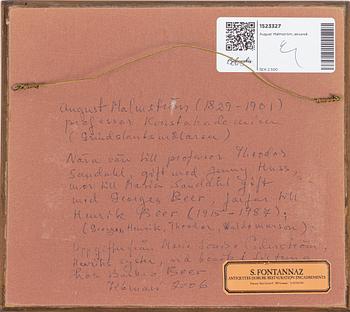 1523327
August Malmström, akvarell
SEK 2.500
August Malmström (1829-1901)
professor Konstakademien
(Grindslantsmålaren)
Nära vän till professor Theodor
Sandahl, gift med Jenny Huss,
mor till Maria Sandahl gift
med Georges Beer, farfar till
Henrik Beer (1915-1987);
(Georges Henrik, Theodor,
Uppgift från Marie Louise
Henriks syster, vid besök
hos Barbro Beer
2006
S. FONTANNAZ
ANTIQUITES DORURE RESTAURATION ENCADREMENTS